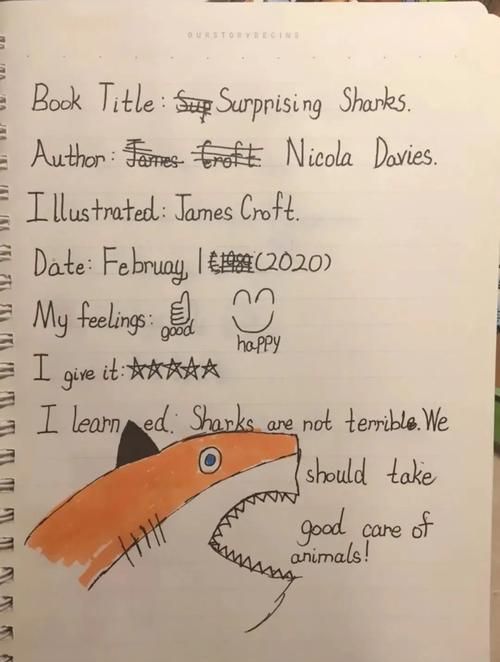 OURSTORYBEGINS
Book Title: Sup Surprising Sharks.
Author: James Croft. Nicola Davies.
Illustrated: James Croft.
Date: Februay, 1 (2020)
My feelings: good
happy
I give it: ☆☆☆☆☆
I learned: Sharks are not terrible. We
should take
good care of
animals!